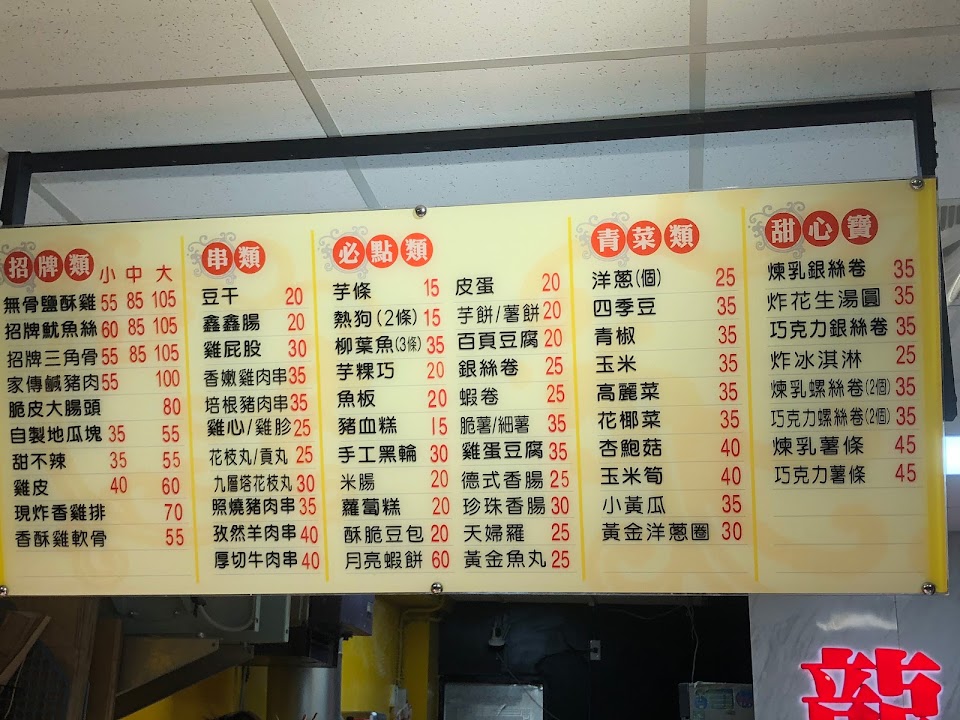 招牌類 小 中 大
無骨鹽酥雞 55 85 105
招牌魷魚絲 60 85 105
招牌三角骨 55 85 105
家傳鹹豬肉 55 100
脆皮大腸頭 80
自製地瓜塊 35 55
甜不辣 35 55
雞皮 40 60
現炸香雞排 70
香酥雞軟骨 55
串類
豆干 20
鑫鑫腸 20
雞屁股 30
香嫩雞肉串 35
培根豬肉串 35
雞心/雞胗 25
花枝丸/貢丸 25
九層塔花枝丸 30
照燒豬肉串 35
孜然羊肉串 40
厚切牛肉串 40
必點類
芋條 15
熱狗(2條) 15
柳葉魚(3條) 35
芋粿巧 20
魚板 20
豬血糕 15
手工黑輪 30
米腸 20
蘿蔔糕 20
酥脆豆包 20
月亮蝦餅 60
皮蛋 20
芋餅/薯餅 20
百頁豆腐 20
銀絲卷 25
蝦卷 25
脆薯/細薯 35
雞蛋豆腐 35
德式香腸 25
珍珠香腸 30
天婦羅 25
黃金魚丸 25
青菜類
洋蔥(個) 25
四季豆 35
青椒 35
玉米 35
高麗菜 35
花椰菜 35
杏鮑菇 40
玉米筍 40
小黃瓜 35
黃金洋蔥圈 30
甜心寶
煉乳銀絲卷 35
炸花生湯圓 35
巧克力銀絲卷 35
炸冰淇淋 25
煉乳螺絲卷(2個) 35
巧克力螺絲卷(2個) 35
煉乳薯條 45
巧克力薯條 45
龍